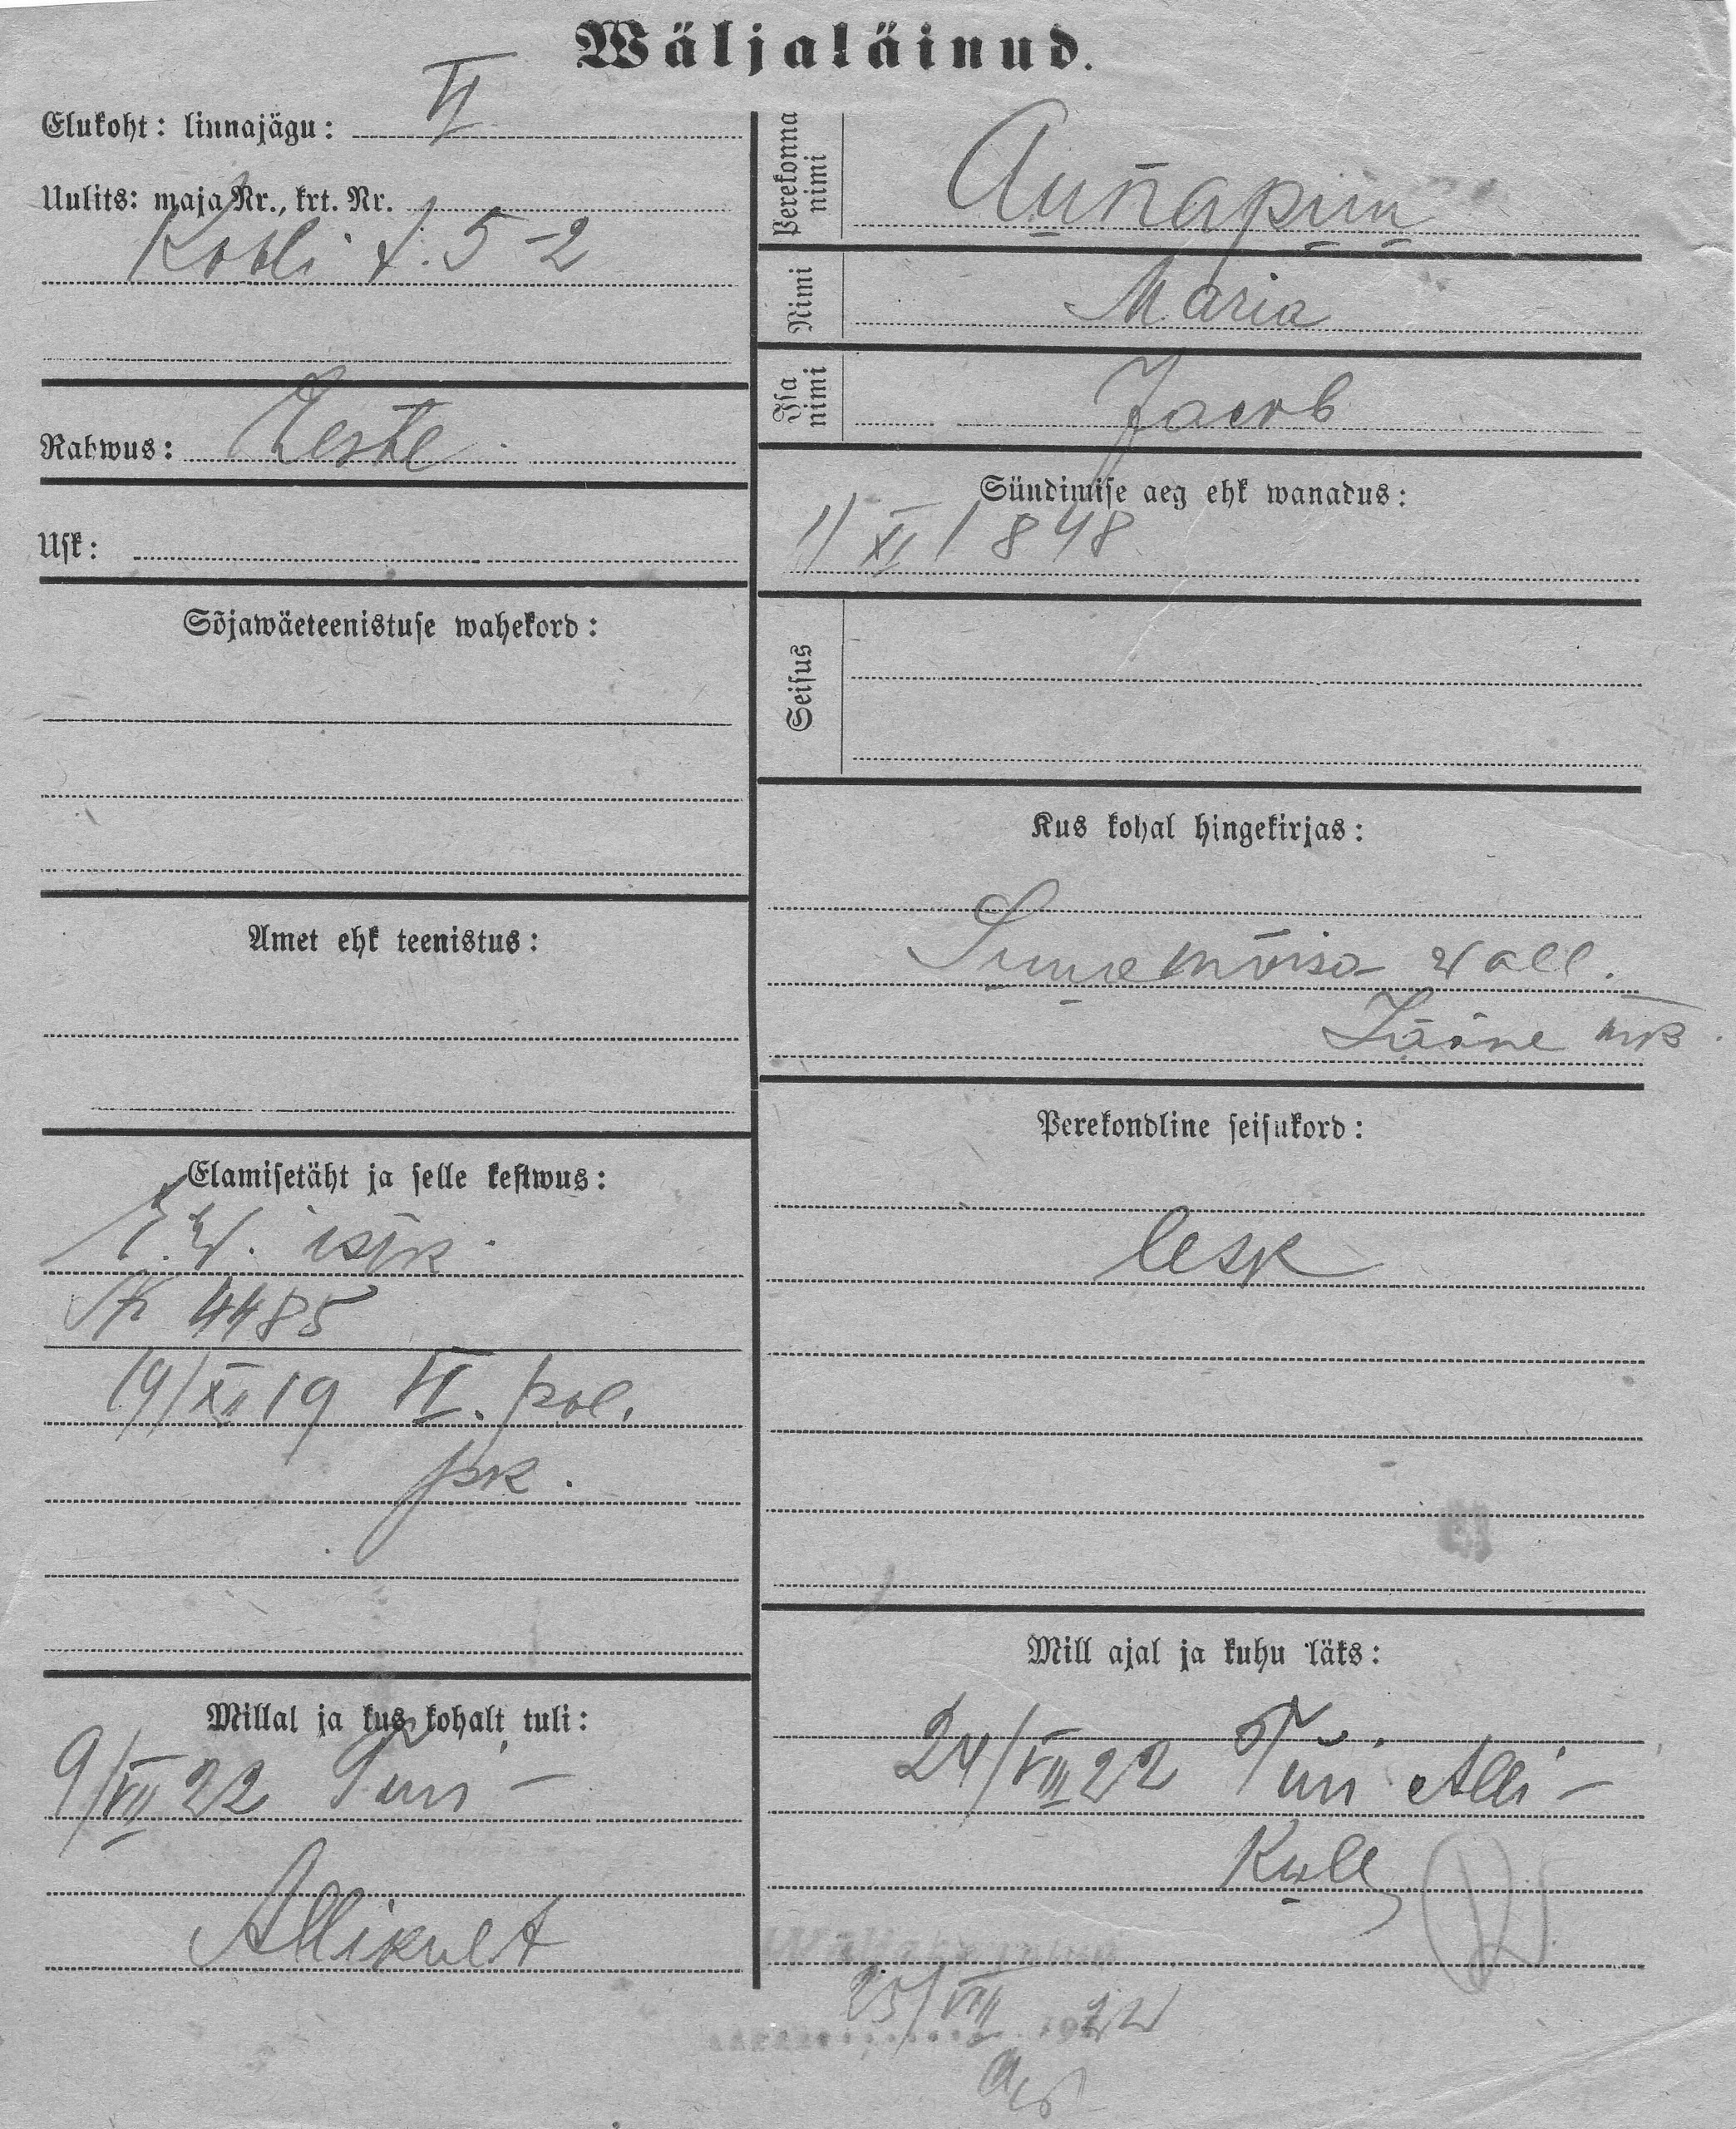 Wäljaläinud.
Elukoht: linnajägu: VI
Uulits: maja Nr., krt. Nr.
Kobli t. 5-2
Rahwus: Eeste
Usk:
Sõjawäeteenistuse wahekord:
Amet ehk teenistus:
Elamisetäht ja selle kestwus:
E.W. isik
4485
19/XII 19 VI. pol.
jsk.
Millal ja kus kohalt tuli:
9/VII 22 Türi-
Allikult
Perekonna nimi
Aunapuu
Nimi
Maria
Isa nimi
Jacob
Sündimise aeg ehk wanadus:
11 XI 1848
Seisus
Kus kohal hingekirjas:
Suuremõisa wall.
Lääne mk.
Perekondline seisukord:
lesk
Mill ajal ja kuhu läks:
24/VIII 22 Türi Alli-
Kulle
25/VIII 1922